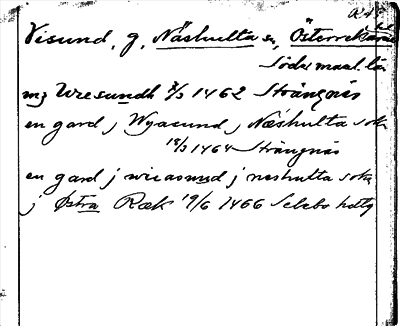 Visund, g, Näshulta sn, Österrekarne
Södermanl. län
Wresundh 7/3 1462 Strängnäs
en gard j Wyasund j Næshulta sokn
18/3 1464 Strängnäs
en gard j wieasund j neshulta sokn
j Østra Ræk 19/6 1466 Selebo